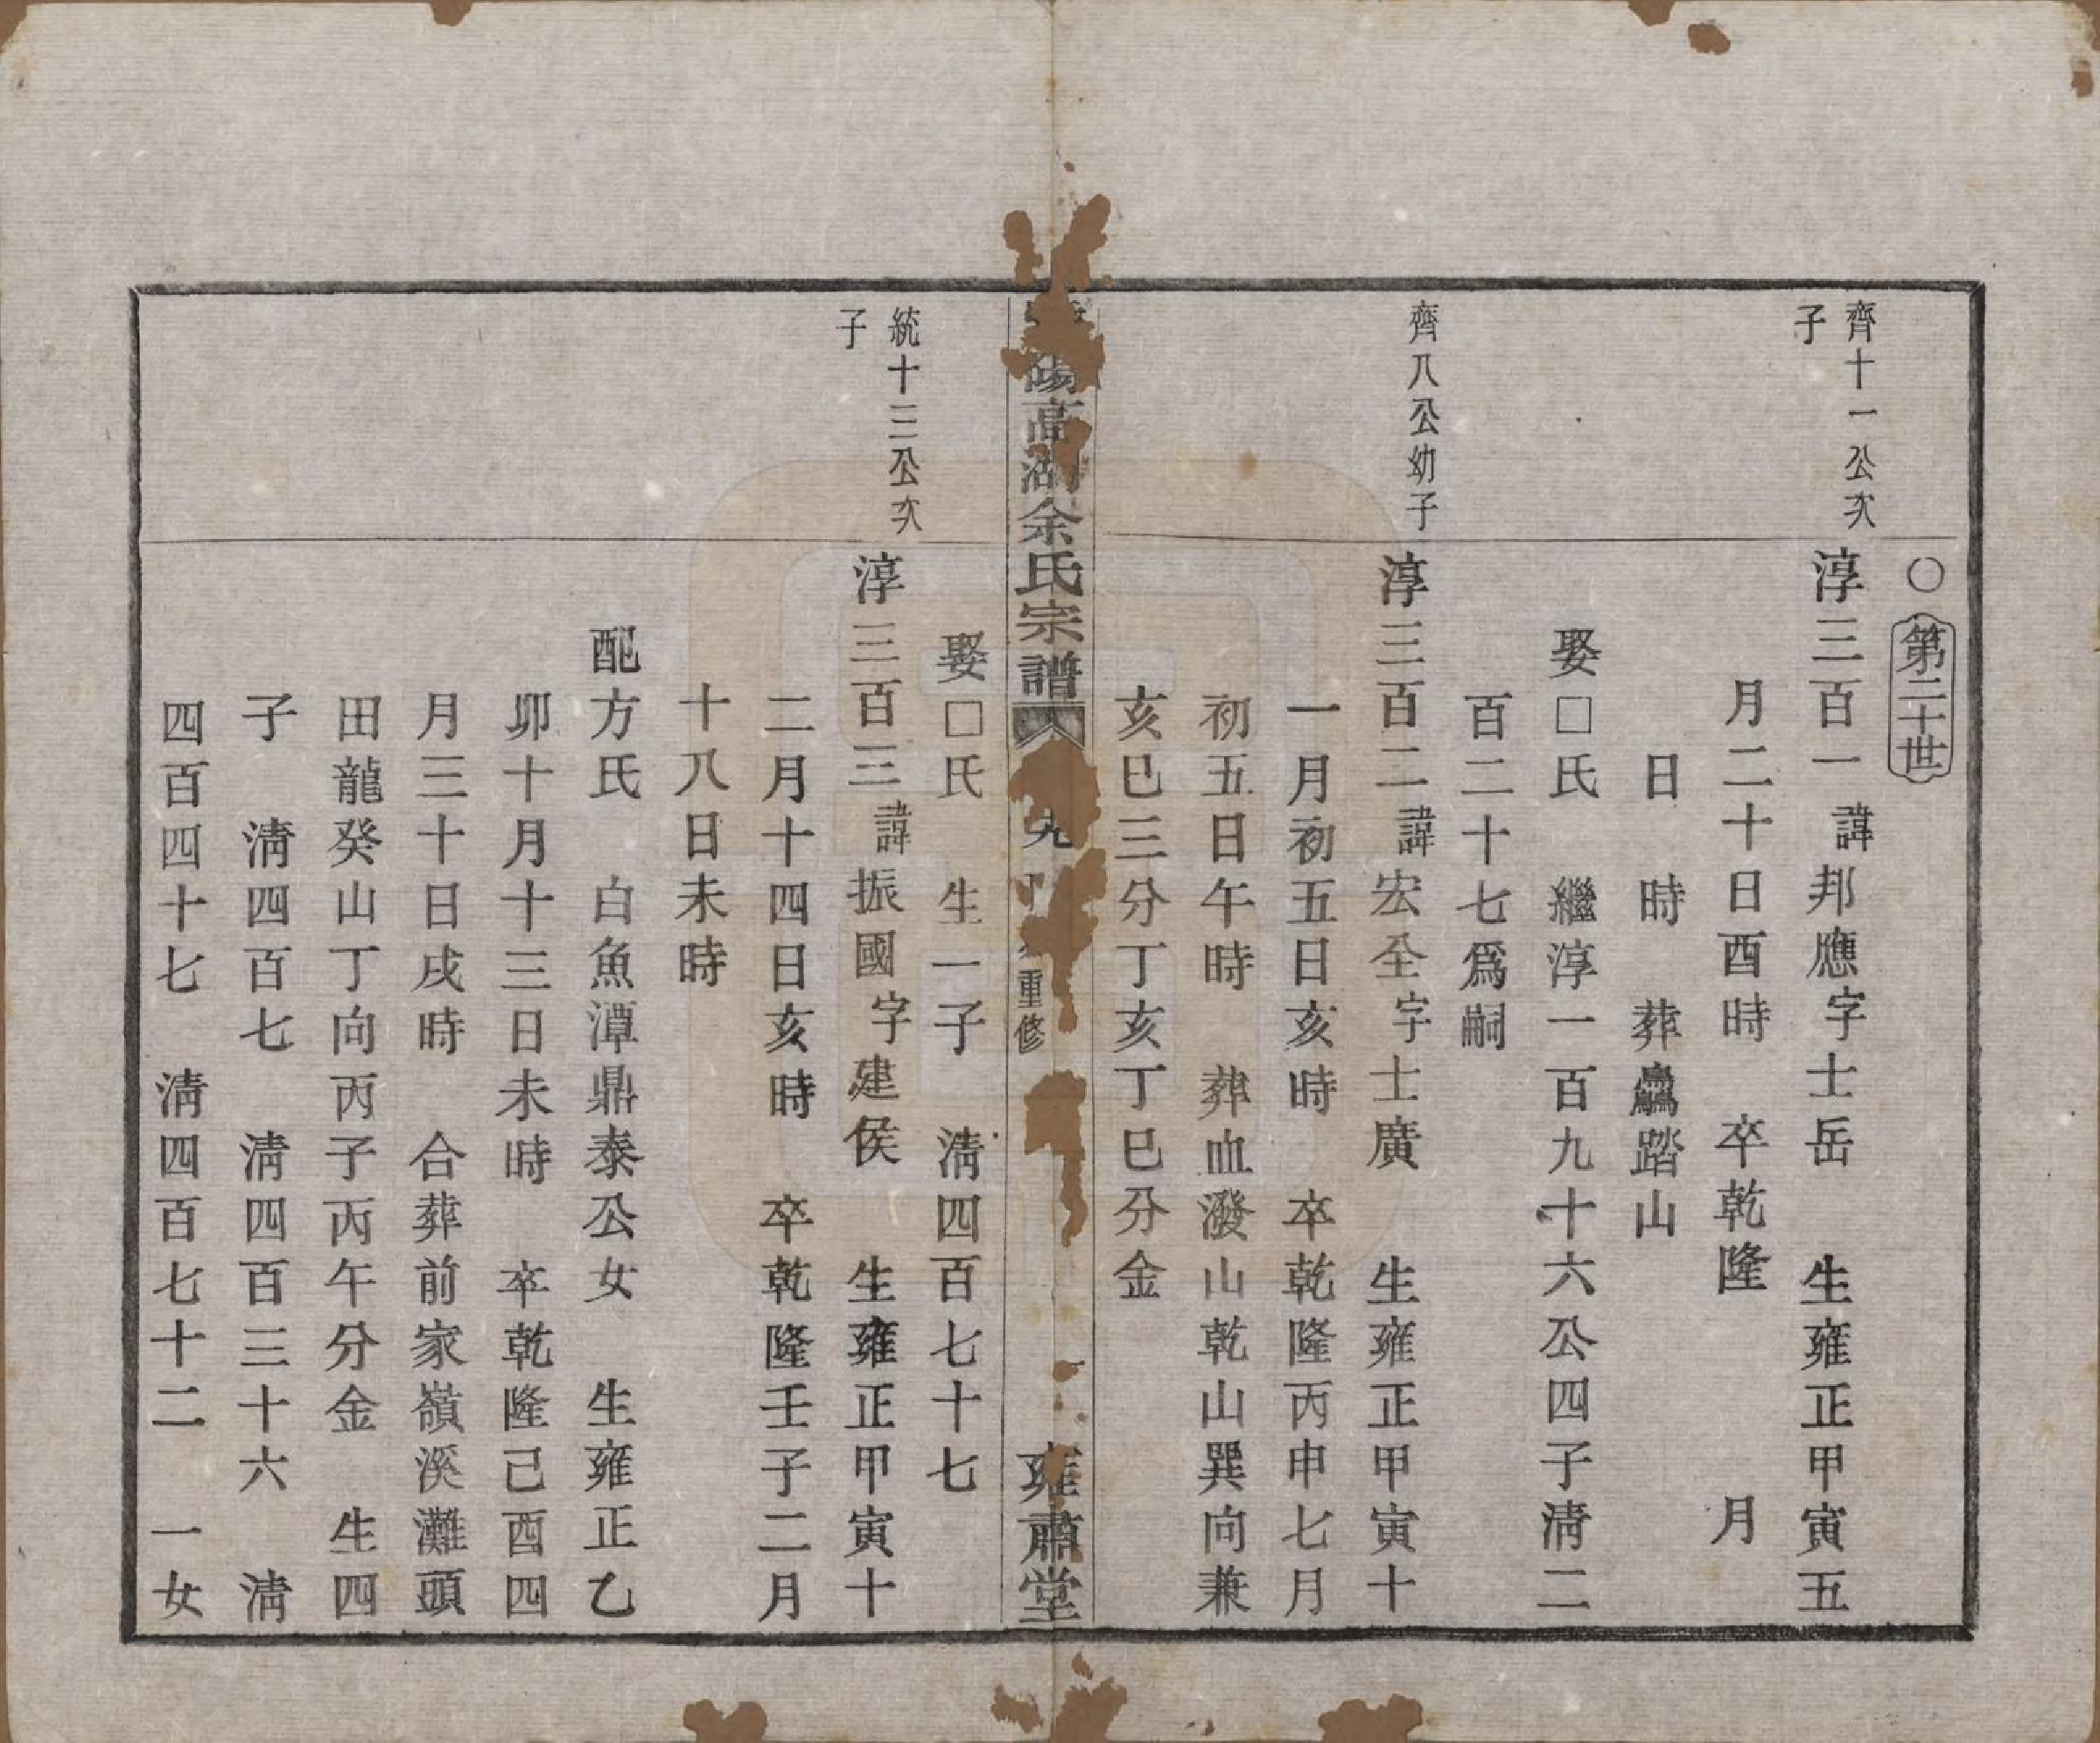 ○第二十世
齊十一公次子
淳三百一諱邦應字士岳　生雍正甲寅五
月二十日酉時　卒乾隆　　　月
日　時　葬驫踏山
娶□氏　繼淳一百九十六公四子淸二
百二十七爲嗣
齊八公幼子
淳三百二諱宏全字士廣　生雍正甲寅十
一月初五日亥時　卒乾隆丙申七月
初五日午時　葬血潑山乾山巽向兼
亥巳三分丁亥丁巳分金
陽高湖余氏宗譜　九　重修　雍肅堂
娶□氏　生一子　淸四百七十七
統十三公次子
淳三百三諱振國字建侯　生雍正甲寅十
二月十四日亥時　卒乾隆壬子二月
十八日未時
配方氏　白魚潭鼎泰公女　生雍正乙
卯十月十三日未時　卒乾隆己酉四
月三十日戌時　合葬前家嶺溪灘頭
田龍癸山丁向丙子丙午分金　生四
子　淸四百七　淸四百三十六　淸
四百四十七　淸四百七十二　一女